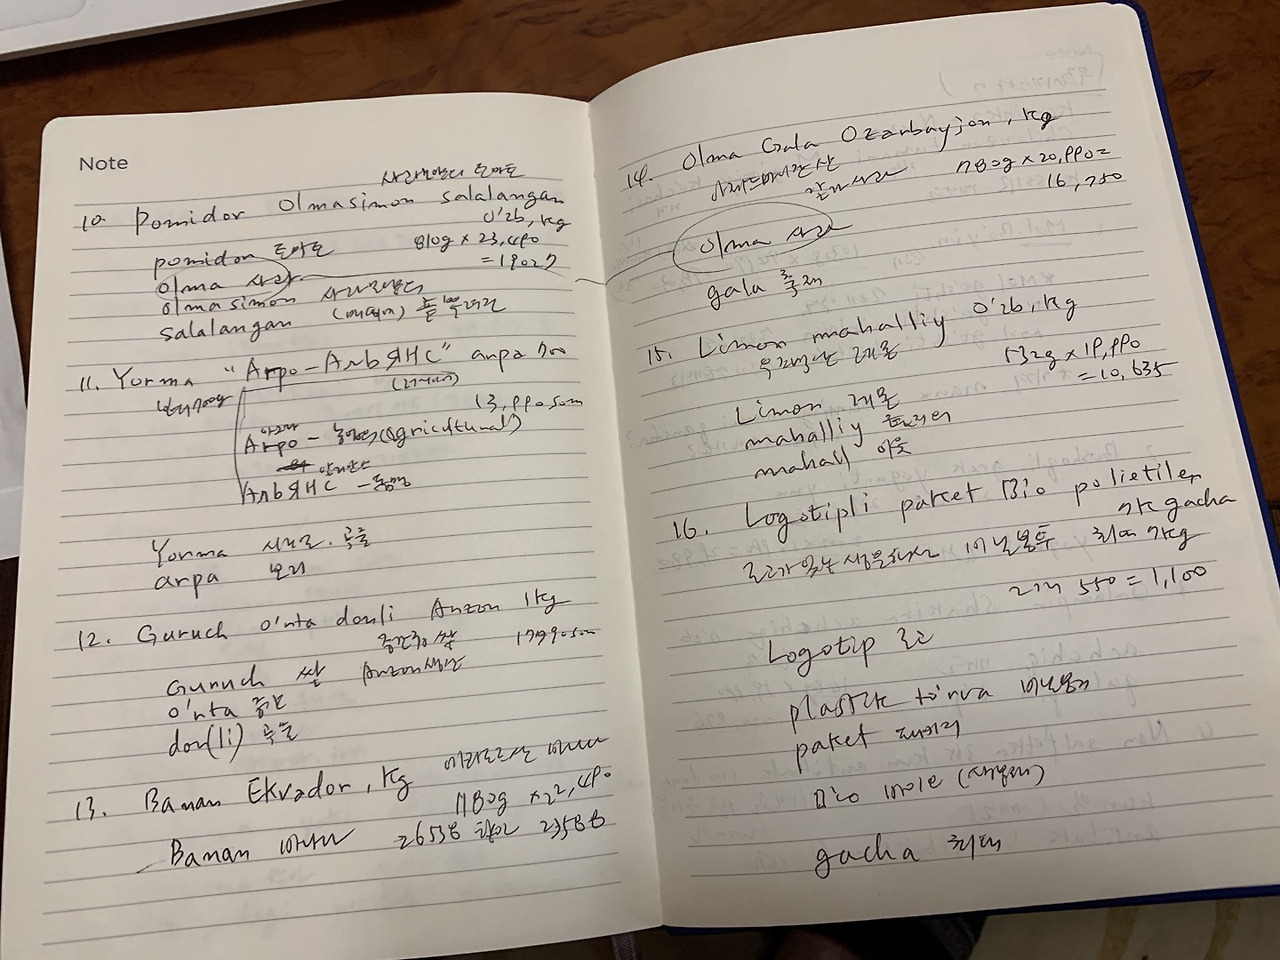 Note
사과닮았다 토마토
10. Pomidor Olmasimon salalangan
o'zb, kg
pomidor 토마토 810g × 23,490
olma 사과 = 19027
olmasimon 사과닮았다
salalangan
11. Yorma "Arpo-АльЯНС" arpa 700
13,990 som
Arpo - 농업의 (agricultural)
АльЯНС - 동맹
Yorma 시리얼. 곡물
arpa 보리
12. Guruch o'nta donli Anzon 1kg
중간쌀 17990 som
Guruch 쌀
o'nta 중간
don(li) 곡물
13. Banan Ekvador, kg 에콰도르산 바나나
1180g × 22,490
Banan 바나나 26538 할인 23588
14. Olma Gala Ozarbayjon, kg
아제르바이잔산
갈라사과 780g × 20,990=
16,750
olma 사과
gala 축제
15. Limon mahalliy o'zb, kg
우즈벡산 레몬 532g × 19,990
= 10,635
Limon 레몬
mahalliy
mahall 이웃
16. Logotipli paket Bio polietilen
7k gacha
로고가있는 비닐봉투 최대 7kg
2개 550 = 1,100
Logotip 로고
plastik to'rva 비닐봉지
paket 패키지
Bio
gacha 최대